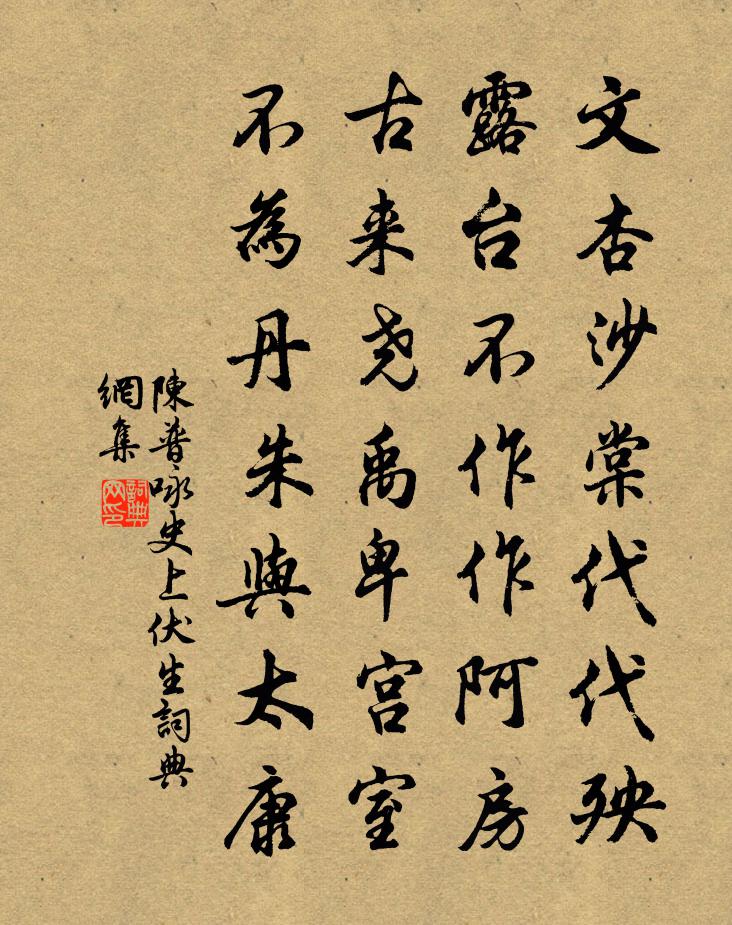 文杏沙棠代代殃
露台不作作阿房
古来尧禹卑宫室
不為丹朱與太康
陳普咏史上伏生詞典
網集
詞典網印